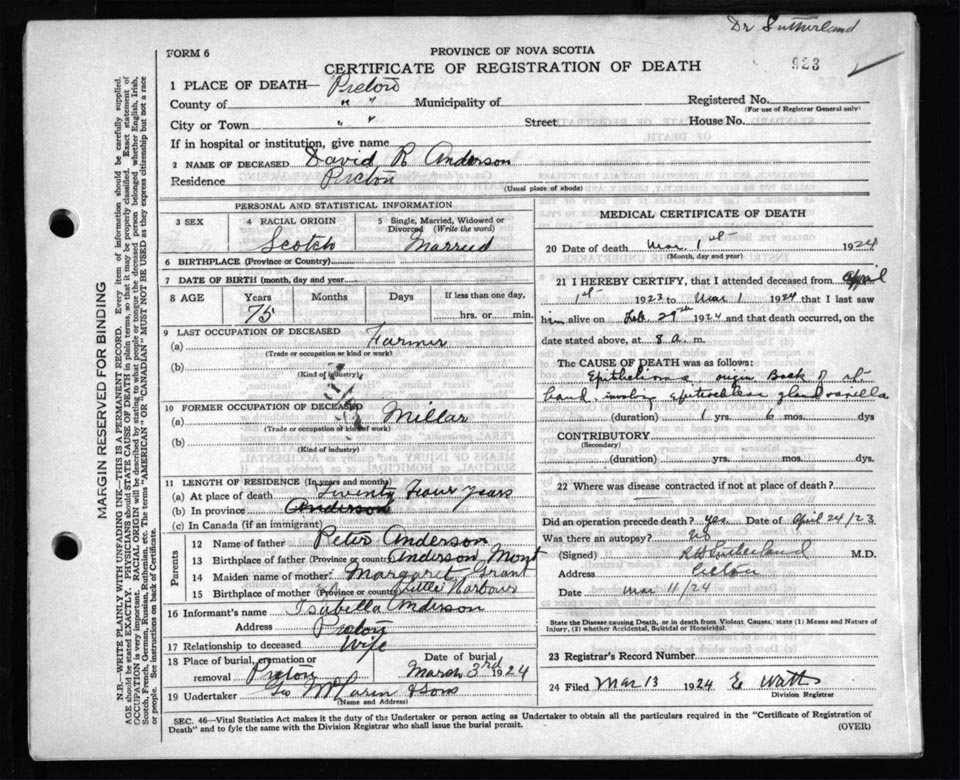 Dr Sutherland
FORM 6
PROVINCE OF NOVA SCOTIA
CERTIFICATE OF REGISTRATION OF DEATH
923
1 PLACE OF DEATH— Pictou
County of " " Municipality of Registered No.
(For use of Registrar General only)
City or Town " " Street House No.
If in hospital or institution, give name
2 NAME OF DECEASED David R Anderson
Residence Pictou
(Usual place of abode)
PERSONAL AND STATISTICAL INFORMATION
3 SEX
4 RACIAL ORIGIN Scotch
5 Single, Married, Widowed or Divorced (Write the word) Married
6 BIRTHPLACE (Province or Country)
7 DATE OF BIRTH (month, day and year)
8 AGE Years 75 Months Days If less than one day, hrs. or min.
9 LAST OCCUPATION OF DECEASED
(a) Farmer
(Trade or occupation or kind of work)
(b)
(Kind of industry)
10 FORMER OCCUPATION OF DECEASED
(a) Millar
(Trade or occupation or kind of work)
(b)
(Kind of industry)
11 LENGTH OF RESIDENCE (In years and months)
(a) At place of death Twenty Four years
(b) In province Anderson
(c) In Canada (if an immigrant)
Parents
12 Name of father Peter Anderson
13 Birthplace of father (Province or country) Anderson Mont
14 Maiden name of mother Margaret Grant
15 Birthplace of mother (Province or country) Little Harbour
16 Informant's name Isabella Anderson
Address Pictou
17 Relationship to deceased Wife
18 Place of burial, cremation or removal Pictou
Date of burial March 3rd 1924
19 Undertaker Geo & Sons
(Name and Address)
MEDICAL CERTIFICATE OF DEATH
20 Date of death Mar. 1st 1924
(Month, day and year)
21 I HEREBY CERTIFY, that I attended deceased from April
1st 1923 to Mar 1 1924 that I last saw
him alive on Feb. 29th 1924 and that death occurred, on
date stated above, at 8 a. m.
The CAUSE OF DEATH was as follows:
Epithelioma origin Back of rt
hand involving epitrochlear gland & axilla
(duration) 1 yrs. 6 mos. dys
CONTRIBUTORY
(Secondary)
(duration) yrs. mos. dys.
22 Where was disease contracted if not at place of death?
Did an operation precede death? yes Date of April 24/23
Was there an autopsy? no
(Signed) R H Sutherland M.D.
Address Pictou
Date Mar 11/24
State the Disease causing Death, or in death from Violent Causes, state (1) Means and Nature of
Injury, (2) whether Accidental, Suicidal or Homicidal.
23 Registrar's Record Number
24 Filed Mar 13 1924 E Watts
Division Registrar
SEC. 46—Vital Statistics Act makes it the duty of the Undertaker or person acting as Undertaker to obtain all the particulars required in the "Certificate of Registration of
Death" and to fyle the same with the Division Registrar who shall issue the burial permit. (OVER)
MARGIN RESERVED FOR BINDING
N.B.—WRITE PLAINLY WITH UNFADING INK—THIS IS A PERMANENT RECORD. Every item of information should be carefully supplied.
AGE should be stated EXACTLY. PHYSICIANS should STATE CAUSE OF DEATH in plain terms, so that it may be properly classified. Exact statement of
OCCUPATION is very important. RACIAL ORIGIN will be described by stating to what people or tongue the deceased person belonged whether English, Irish,
Scotch, French, German, Russian, Ruthenian, etc. The terms "AMERICAN" or "CANADIAN" MUST NOT BE USED as they express citizenship but not a race
or people. See instructions on back of Certificate.